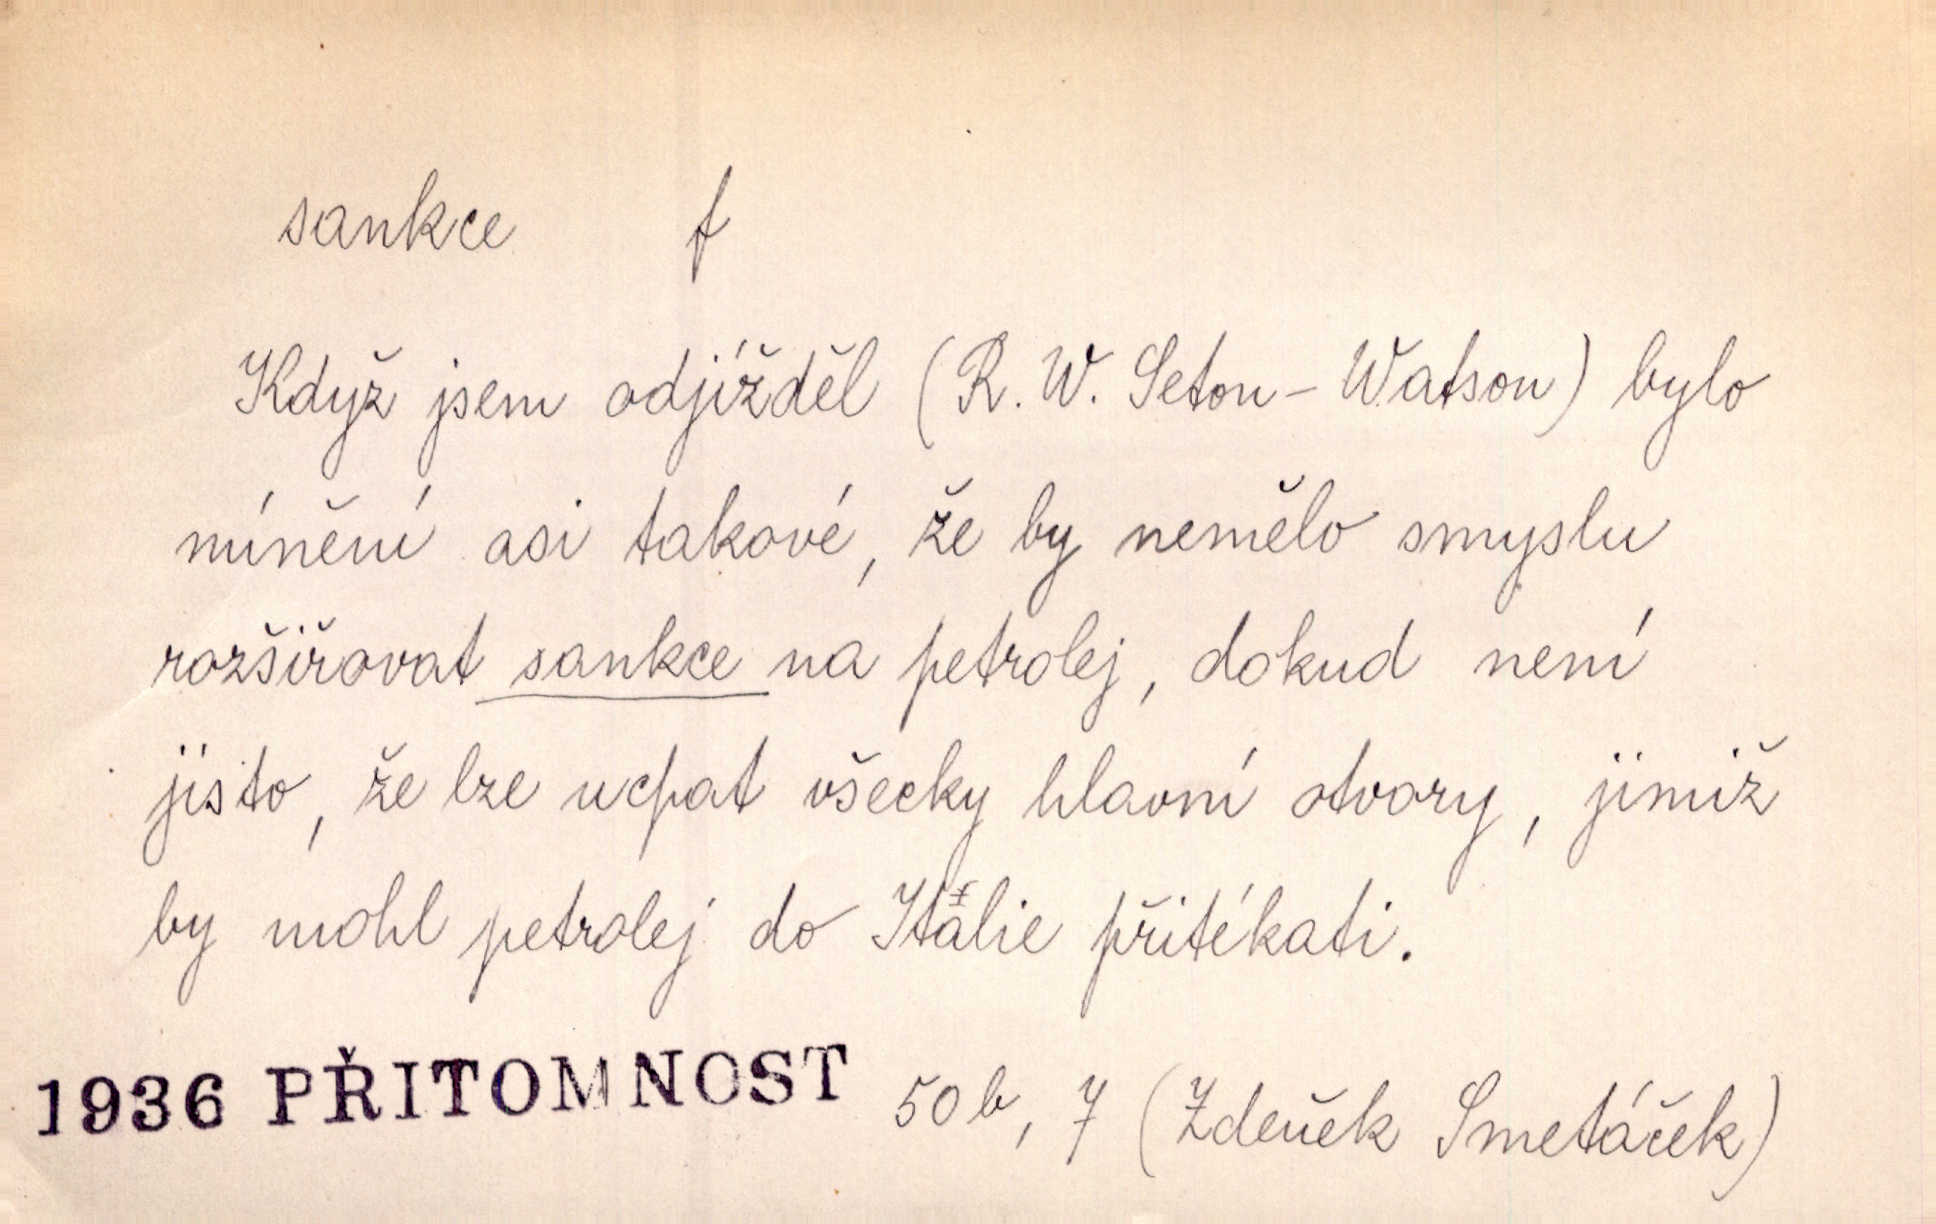 sankce f
Když jsem odjížděl (R. W. Seton - Watson) bylo
mínění asi takové, že by nemělo smyslu
rozšiřovat sankce na petrolej, dokud není
jisto, že lze ucpat všecky hlavní otvory, jimiž
by mohl petrolej do Itálie přitékati.
1936 PŘITOMNOST 50b, 7 (Zdeněk Smetáček)